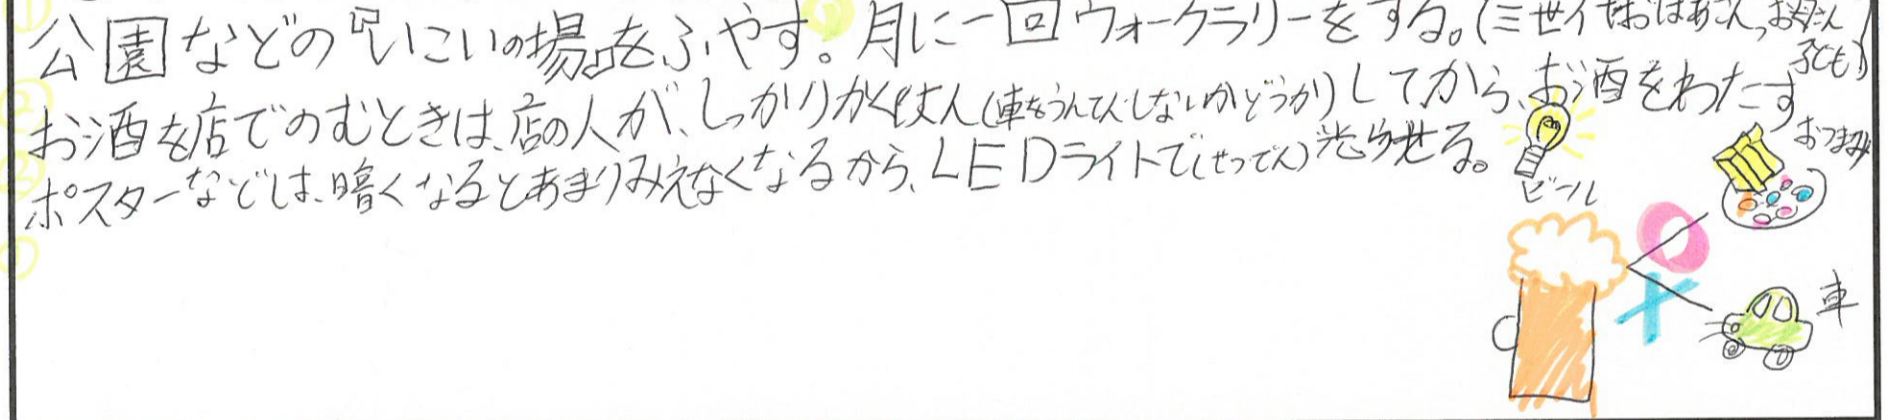 ①
公園などの『いこいの場』をふやす。月に一回ウォークラリーをする。(三世代でおばあさん、お母さん
子ども)
②
お酒を店でのむときは、店の人が、しっかりかくにん(車をうんてんしないかどうか)してから、お酒をわたす
③
ポスターなどは、暗くなるとあまりみえなくなるから、LEDライトで(せつでん)光らせる。
おつまみ
ビール
車